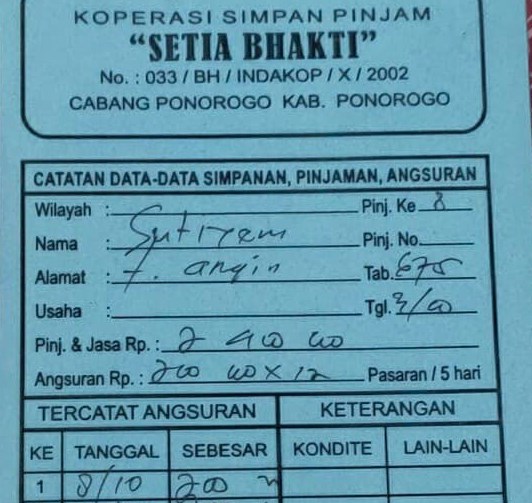 KOPERASI SIMPAN PINJAM
“SETIA BHAKTI”
No. : 033 / BH / INDAKOP / X / 2002
CABANG PONOROGO KAB. PONOROGO
CATATAN DATA-DATA SIMPANAN, PINJAMAN, ANGSURAN
Wilayah : Pinj. Ke 8
Nama : Sutiyem Pinj. No.
Alamat : angin Tab. 675
Usaha : Tgl.
Pinj. & Jasa Rp. :
Angsuran Rp. : Pasaran / 5 hari
TERCATAT ANGSURAN KETERANGAN
KE TANGGAL SEBESAR KONDITE LAIN-LAIN
1 8/10 200